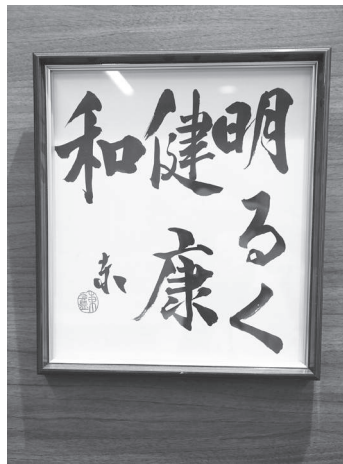 明るく
健康
和